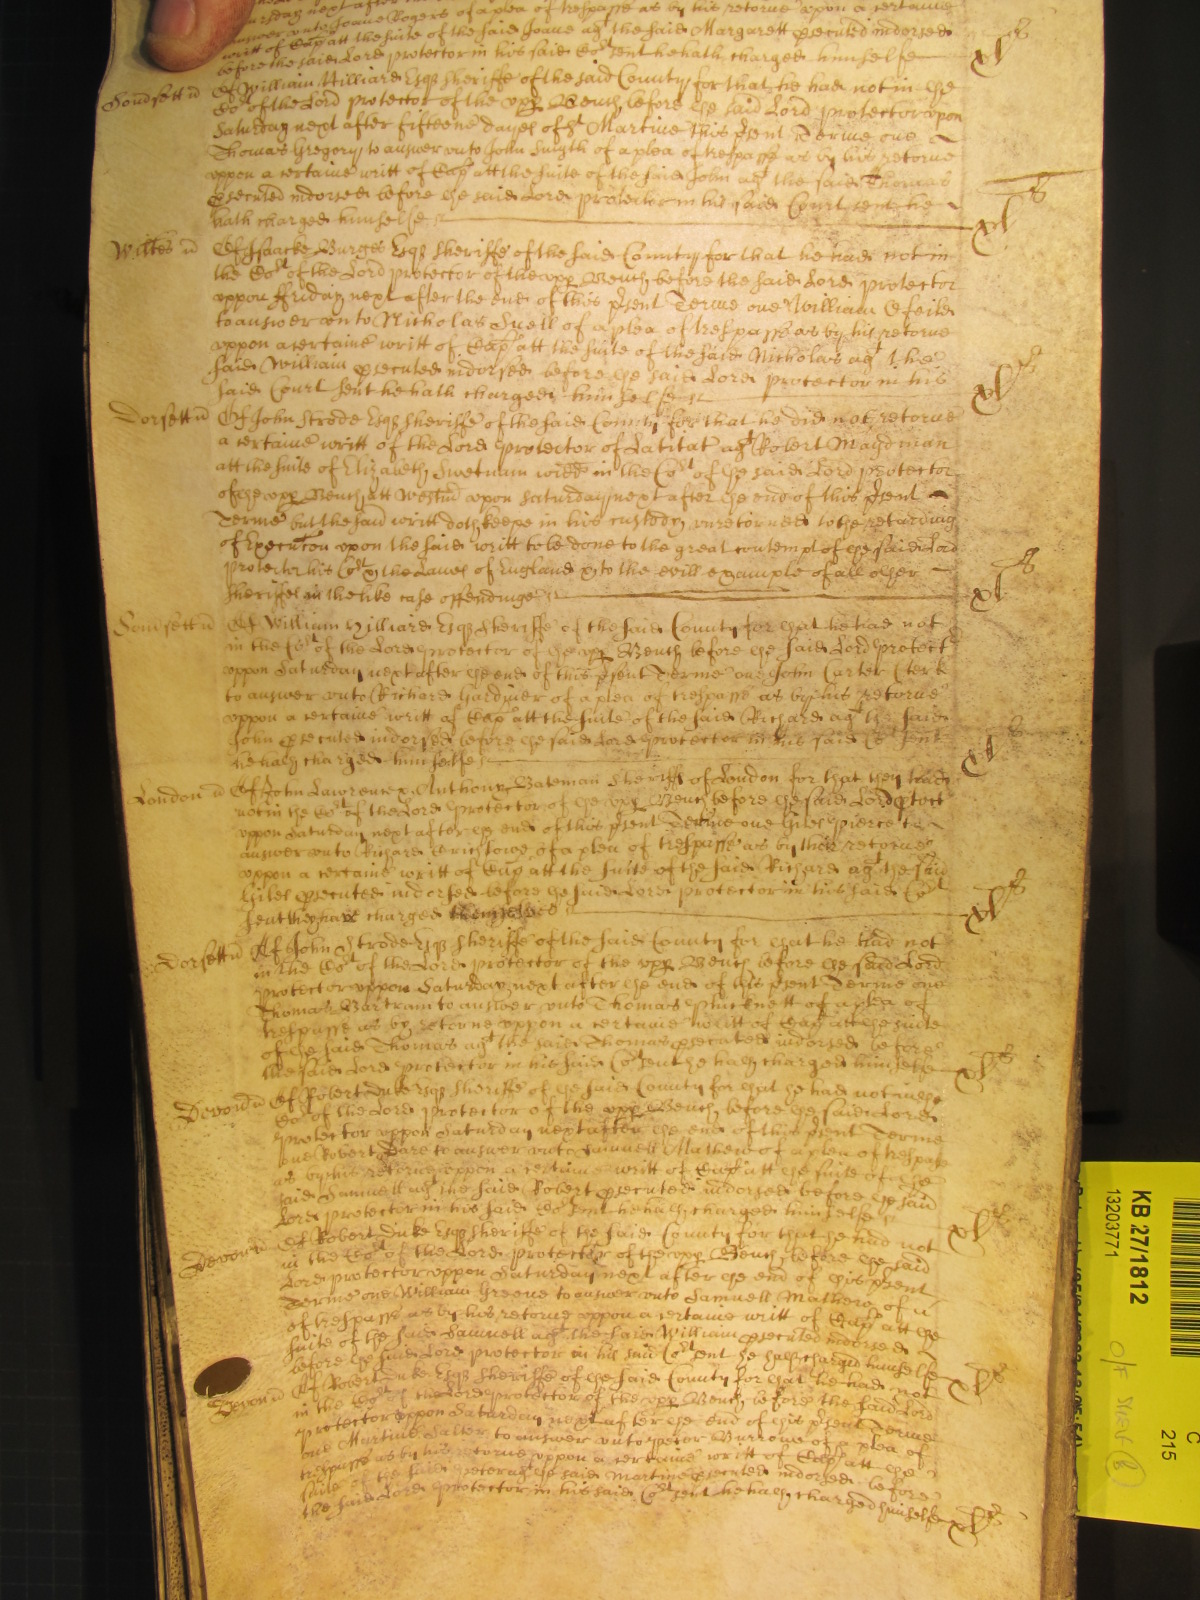 answer unto Joane Rogers of a plea of trespasse as by his retorne upon a certaine
writt of Cap att the suite of the said Joane agt the said Margarett executed indorsed
before the said Lord protector in his said Cort sent he hath charged himselfe xls
Somsett ss Of William Hilliard Esqr Sheriffe of the said County for that he had not in the
Cort of the Lord protector of the upp Bench before the said Lord protector upon
Saturday next after fifteene dayes of St Martine this psent Terme one
Thomas Gregory to answer unto John Smyth of a plea of trespasse as by his retorne
uppon a certaine writt of Cap att the suite of the said John agt the said Thomas
executed indorsed before the said Lord protector in his said Court sent he
hath charged himselfe xls
Wiltes ss Of Isaacke Burges Esqr Sheriffe of the said County for that he had not in
the Cort of the Lord protector of the upp Bench before the said Lord protector
uppon ffriday next after the end of this psent Terme one William
to answer unto Nicholas Snell of a plea of trespasse as by his retorne
uppon a certaine writt of Cap att the suite of the said Nicholas agt the
said William executed indorsed before the said Lord protector in his
said Court sent he hath charged himselfe xls
Dorsett ss Of John Strode Esqr Sheriffe of the said County for that he did not retorne
a certaine writt of the Lord protector of Latitat agt Robert Maydman
att the suite of Elizabeth Swetnam in the Cort of the said Lord protector
of the upp Bench att Westmr upon Saturday next after the end of this psent
Terme but the said writt doth keepe in his custody unretorned to the retarding
of Execucon upon the said writt to be done to the great contempt of the said Lord
protector his Cort & the Lawes of England & to the evill example of all other
Sheriffes in the like case offendinge xls
Somsett ss Of William Hilliard Esqr Sheriffe of the said County for that he had not
in the Cort of the Lord protector of the upp Bench before the said Lord protect
uppon Saturday next after the end of this psent Terme one John Carter Clerk
to answer unto Richard Gardiner of a plea of trespasse as by his retorne
uppon a certaine writt of Cap att the suite of the said Richard agt the said
John executed indorsed before the said Lord protector in his said Cort sent
he hath charged himselfe xls
London ss Of John Lawrence & Anthony Bateman Sheriffs of London for that they had
not in the Cort of the Lord protector of the upp Bench before the said Lord ptect
uppon Saturday next after the end of this psent Terme one Giles Pierce to
answer unto Richard of a plea of trespasse as by their retorne
uppon a certaine writt of Cap att the suite of the said Richard agt the said
Giles executed indorsed before the said Lord protector in his said Cort
sent they have charged themselves xls
Dorsett ss Of John Strode Esqr Sheriffe of the said County for that he had not
in the Cort of the Lord protector of the upp Bench before the said Lord
protector uppon Saturday next after the end of this psent Terme one
Thomas Bartram to answer unto Thomas Plucknett of a plea of
trespasse as by retorne uppon a certaine writt of Cap att the suite
of the said Thomas agt the said Thomas executed indorsed before
the said Lord protector in his said Cort sent he hath charged himselfe xls
Devon ss Of Robert Duke Esqr Sheriffe of the said County for that he had not in the
Cort of the Lord protector of the upp Bench before the said Lord
protector uppon Saturday next after the end of this psent Terme
one Robert Dare to answer unto Samuell Mathew of a plea of trespass
as by his retorne uppon a certaine writt of Cap att the suite of the
said Samuell agt the said Robert executed indorsed before the said
Lord protector in his said Cort sent he hath charged himselfe xls
Devon ss Of Robert Duke Esqr Sheriffe of the said County for that he had not
in the Cort of the Lord protector of the upp Bench before the said
Lord protector uppon Saturday next after the end of this psent
Terme one William Greene to answer unto Samuell Mathew of a
of trespasse as by his retorne uppon a certaine writt of Cap att the
suite of the said Samuell agt the said William executed indorsed
before the said Lord protector in his said Cort sent he hath charged himselfe xls
Devon ss Of Robert Duke Esqr Sheriffe of the said County for that he had not
in the Cort of the Lord protector of the upp Bench before the said Lord
protector uppon Saturday next after the end of this psent Terme
one Martine Salter to answer unto Peter Burrowe of a plea of
trespasse as by his retorne uppon a certaine writt of Cap att the
suite of the said Peter agt the said Martine executed indorsed before
the said Lord protector in his said Cort sent he hath charged himselfe xls
KB 27/1812
13203771
C
215